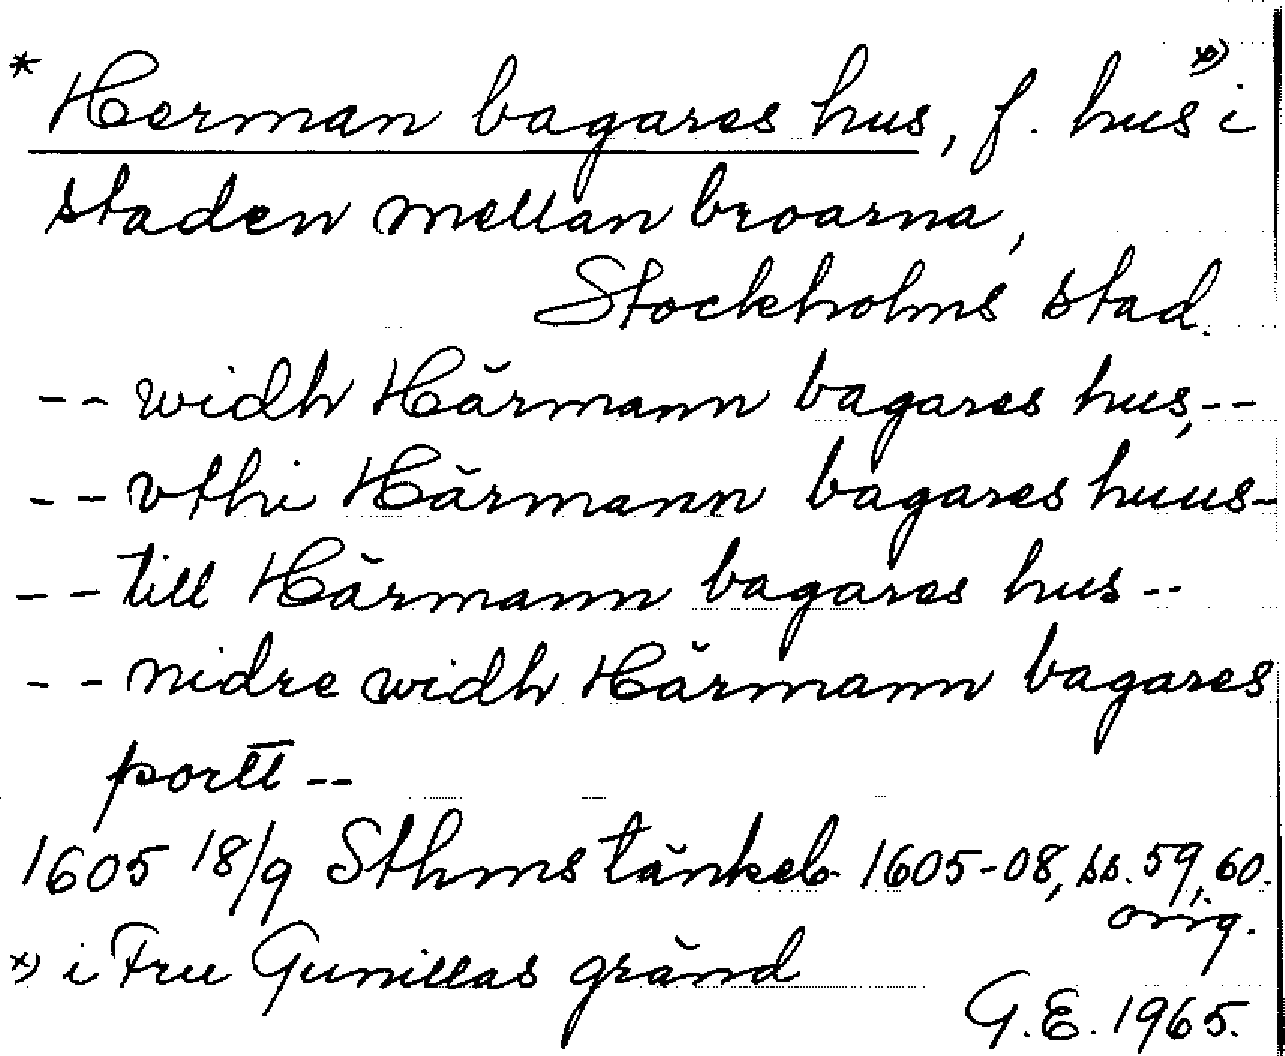 * Herman bagares hus, f. hus *) i
staden mellan broarna,
Stockholms stad.
-- widh Härmann bagares hus, --
-- vthi Härmann bagares huus -
-- till Härmann bagares hus --
-- nidre widh Härmann bagares
portt --
1605 18/9 Sthms tänkeb 1605-08, ss. 59, 60.
orig.
*) i Fru Gunillas gränd
G.E. 1965.